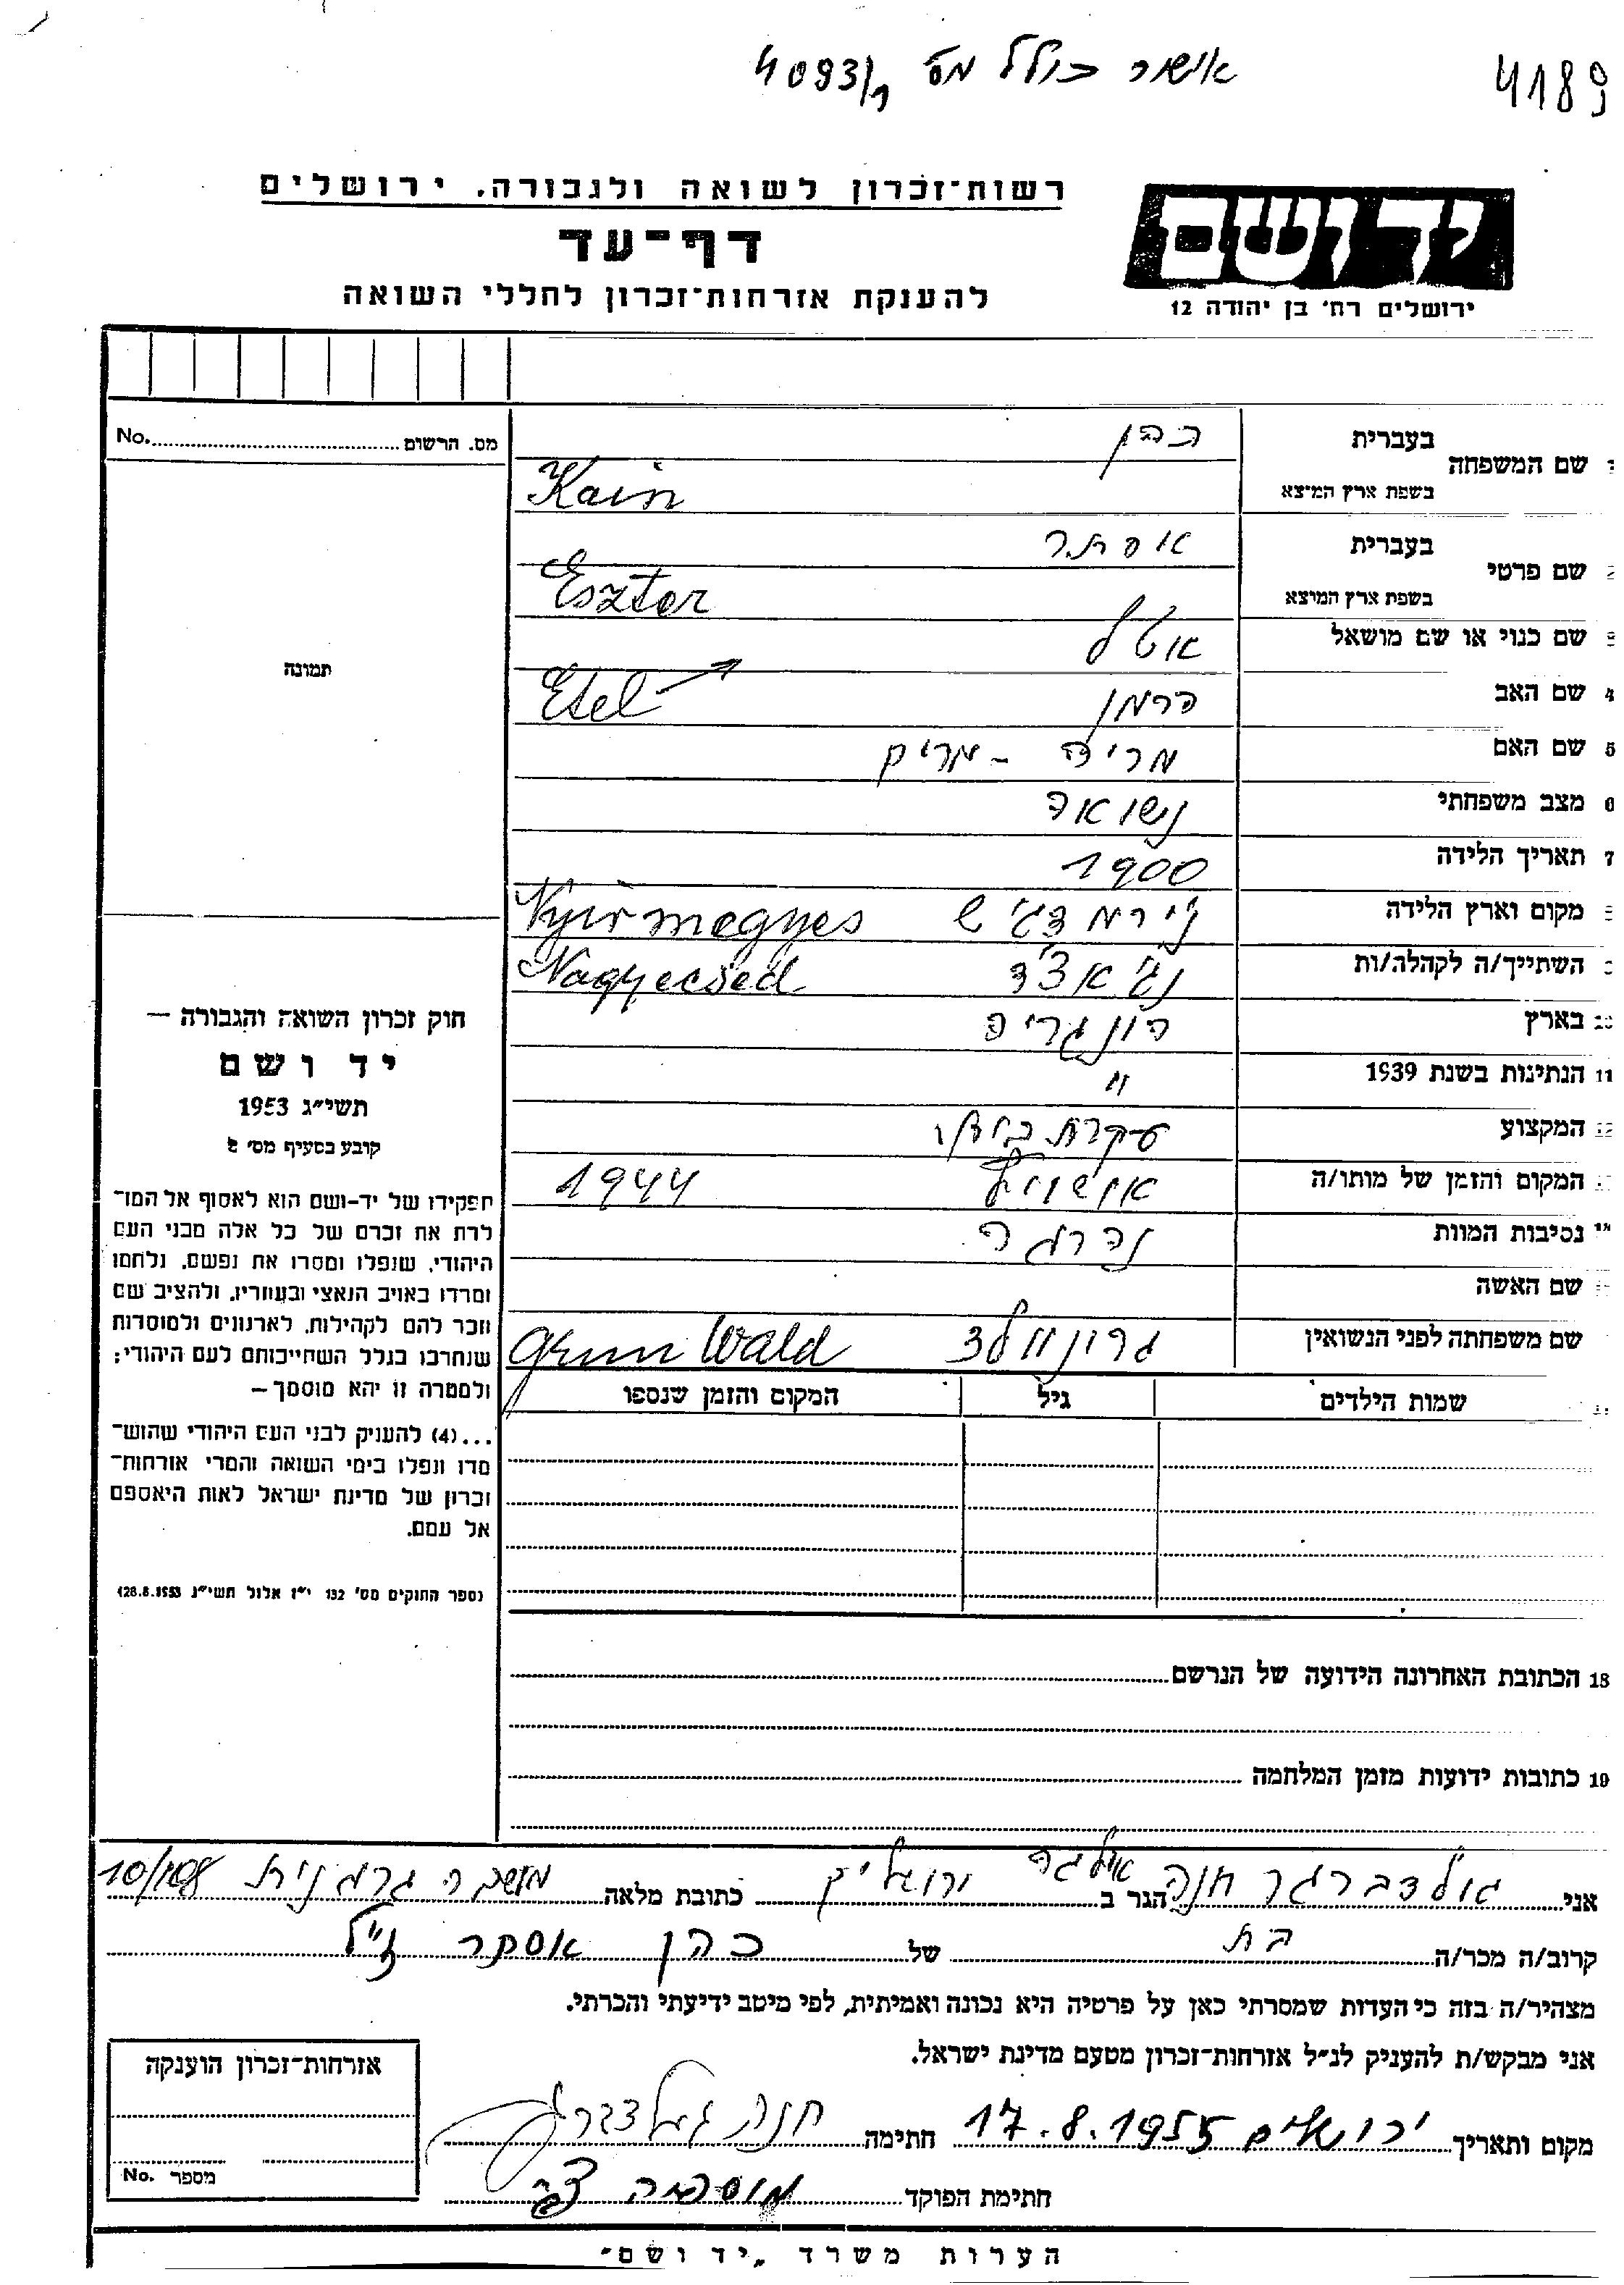 אישור כולל מס 4093/1
4189
רשות־זכרון לשואה ולגבורה. ירושלים
דף־עד
להענקת אזרחות־זכרון לחללי השואה
יד ושם
ירושלים רח׳ בן יהודה 12
מס. הרשום No.
שם המשפחה
בעברית כהן
בשפת ארץ המיצא Kain
שם פרטי
בעברית אסתר
בשפת ארץ המיצא Eszter
שם כנוי או שם מושאל אטל
Etel
4 שם האב הרמן
5 שם האם מריה - מרים
6 מצב משפחתי נשואה
7 תאריך הלידה 1900
מקום וארץ הלידה נירמדג׳ש Nyirmegyes
השתייך/ה לקהלה/ות נג׳אצ׳ד Nagyecsed
10 בארץ הונגריה
11 הנתינות בשנת 1939 "
12 המקצוע עקרת בית
המקום והזמן של מותו/ה אושויץ 1944
נסיבות המוות נהרגה
שם האשה
שם משפחתה לפני הנשואין גרונוולד Grunwald
שמות הילדים גיל המקום והזמן שנספו
18 הכתובת האחרונה הידועה של הנרשם
19 כתובות ידועות מזמן המלחמה
תמונה
חוק זכרון השואה והגבורה —
יד ושם
תשי״ג 1953
קובע בסעיף מס׳ 2
תפקידו של יד-ושם הוא לאסוף אל המו־
לדת את זכרם של כל אלה מבני העם
היהודי, שנפלו ומסרו את נפשם, נלחמו
ומרדו באויב הנאצי ובעוזריו, ולהציב שם
וזכר להם לקהילות, לארגונים ולמוסדות
שנחרבו בגלל השתייכותם לעם היהודי;
ולמטרה זו יהא מוסמך —
...(4) להעניק לבני העם היהודי שהוש־
מדו ונפלו בימי השואה והמרי אזרחות־
זכרון של מדינת ישראל לאות היאספם
אל עמם.
(ספר החוקים מס׳ 132 י״ז אלול תשי״ג 28.8.1953)
אני גולדברגר חנה אולגה הגר ב ירושלים כתובת מלאה מושבה גרמנית 10/108
קרוב/ה מכר/ה בת של כהן אסתר ז״ל
מצהיר/ה בזה כי העדות שמסרתי כאן על פרטיה היא נכונה ואמיתית, לפי מיטב ידיעתי והכרתי.
אני מבקש/ת להעניק לנ״ל אזרחות־זכרון מטעם מדינת ישראל.
מקום ותאריך ירושלים 17.8.1955 חתימה חנה גולדברגר
חתימת הפוקד
אזרחות־זכרון הוענקה
מספר No.
הערות משרד „יד ושם"